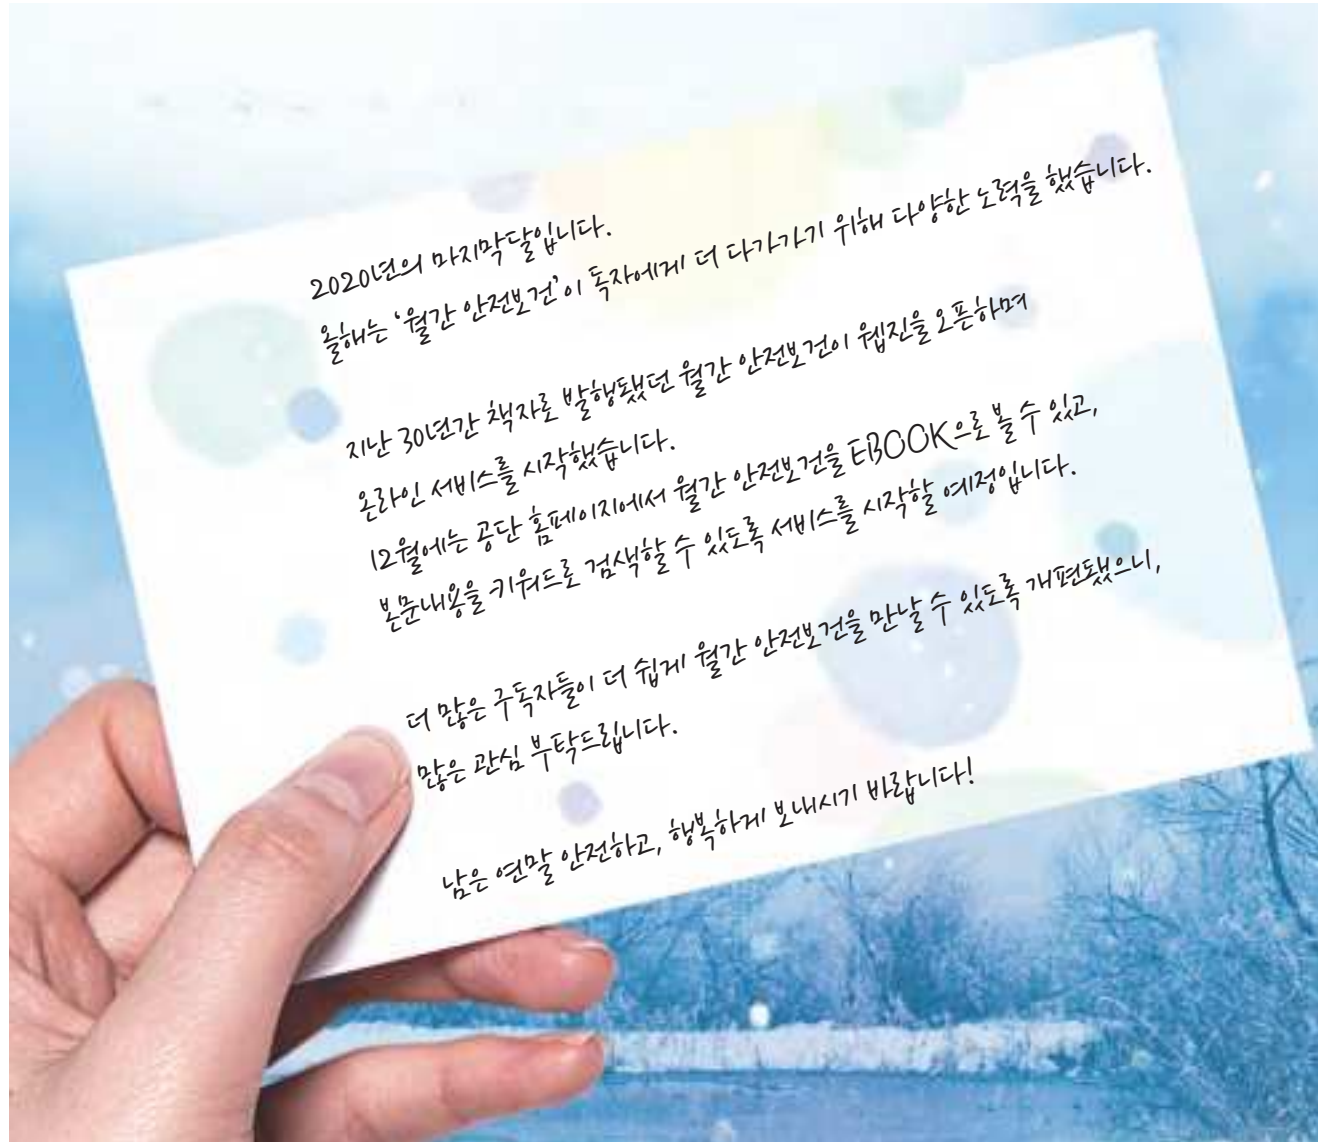 2020년의 마지막달입니다.
올해는 ‘월간 안전보건’이 독자에게 더 다가가기 위해 다양한 노력을 했습니다.
지난 30년간 책자로 발행됐던 월간 안전보건이 웹진을 오픈하며
온라인 서비스를 시작했습니다.
12월에는 공단 홈페이지에서 월간 안전보건을 EBOOK으로 볼 수 있고,
본문내용을 키워드로 검색할 수 있도록 서비스를 시작할 예정입니다.
더 많은 구독자들이 더 쉽게 월간 안전보건을 만날 수 있도록 개편됐으니,
많은 관심 부탁드립니다.
남은 연말 안전하고, 행복하게 보내시기 바랍니다!